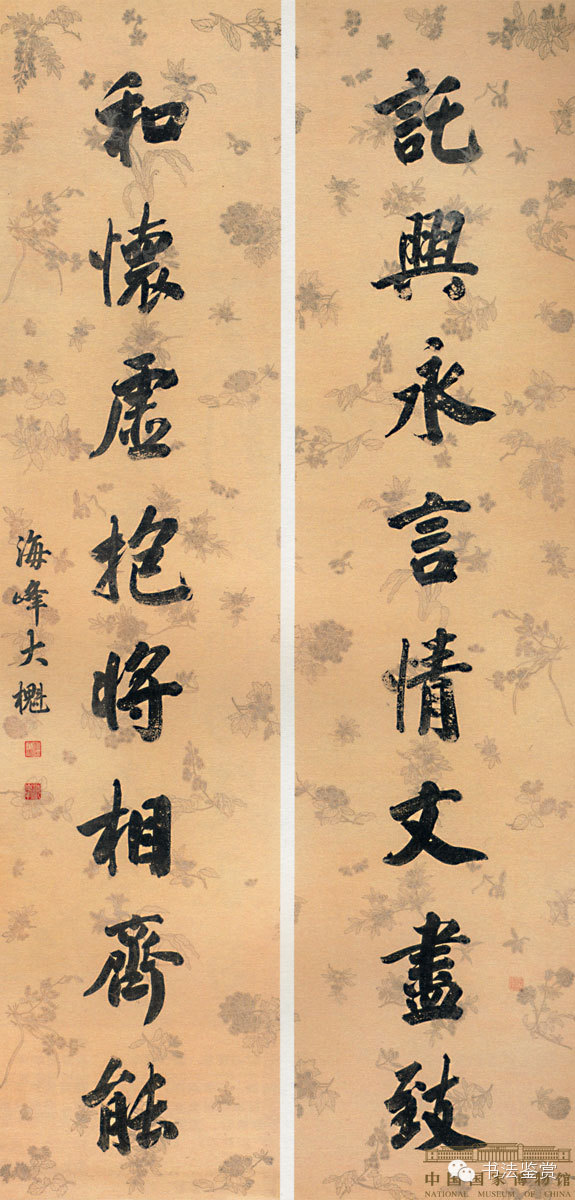 託興永言情文盡致
和懷虛抱將相齊能
海峰大櫆
中国国家博物馆
NATIONAL MUSEUM OF CHINA
书法鉴赏